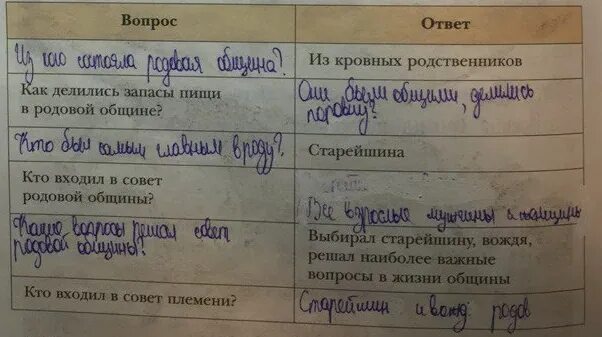 Вопрос
Ответ
Из кого состояла родовая община?
Из кровных родственников
Как делились запасы пищи
в родовой общине?
Они были общими, делились
поровну?
Кто был самым главным в роду?
Старейшина
Кто входил в совет
родовой общины?
Все взрослые мужчины и женщины
Какие вопросы решал совет
родовой общины?
Выбирал старейшину, вождя,
решал наиболее важные
вопросы в жизни общины
Кто входил в совет племени?
Старейшин и вожд родов